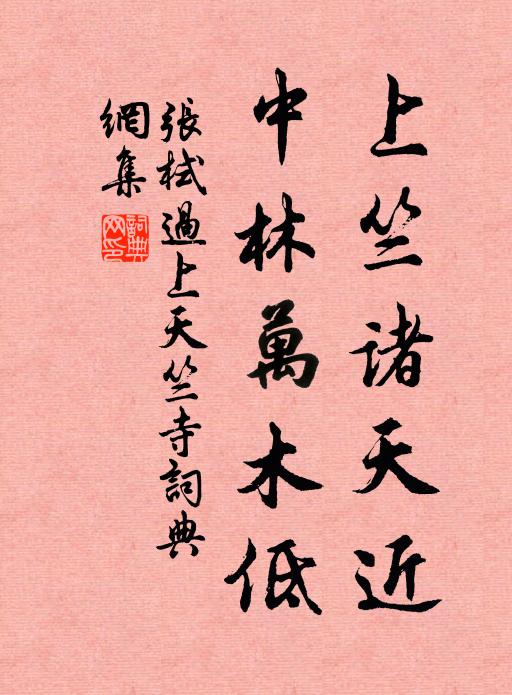 上竺諸天近
中林萬木低
張栻過上天竺寺詞典
網集
詞典網印